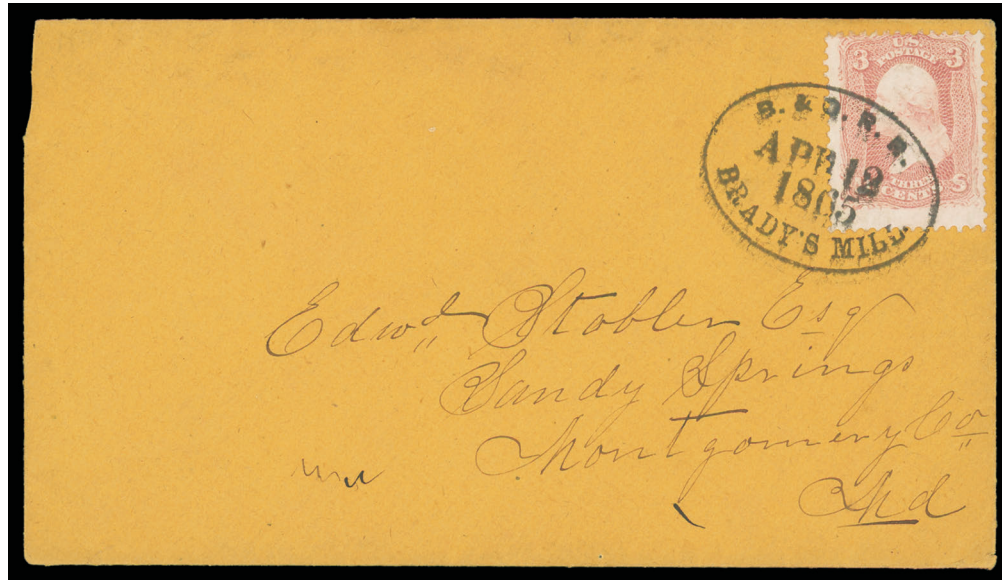 3 U.S. 3
POSTAGE
THREE
CENTS
B. & O. R. R.
APR 12
1865
BRADY'S MILL.
Edwd Stabler Esq
Sandy Springs
Montgomery Co
Md